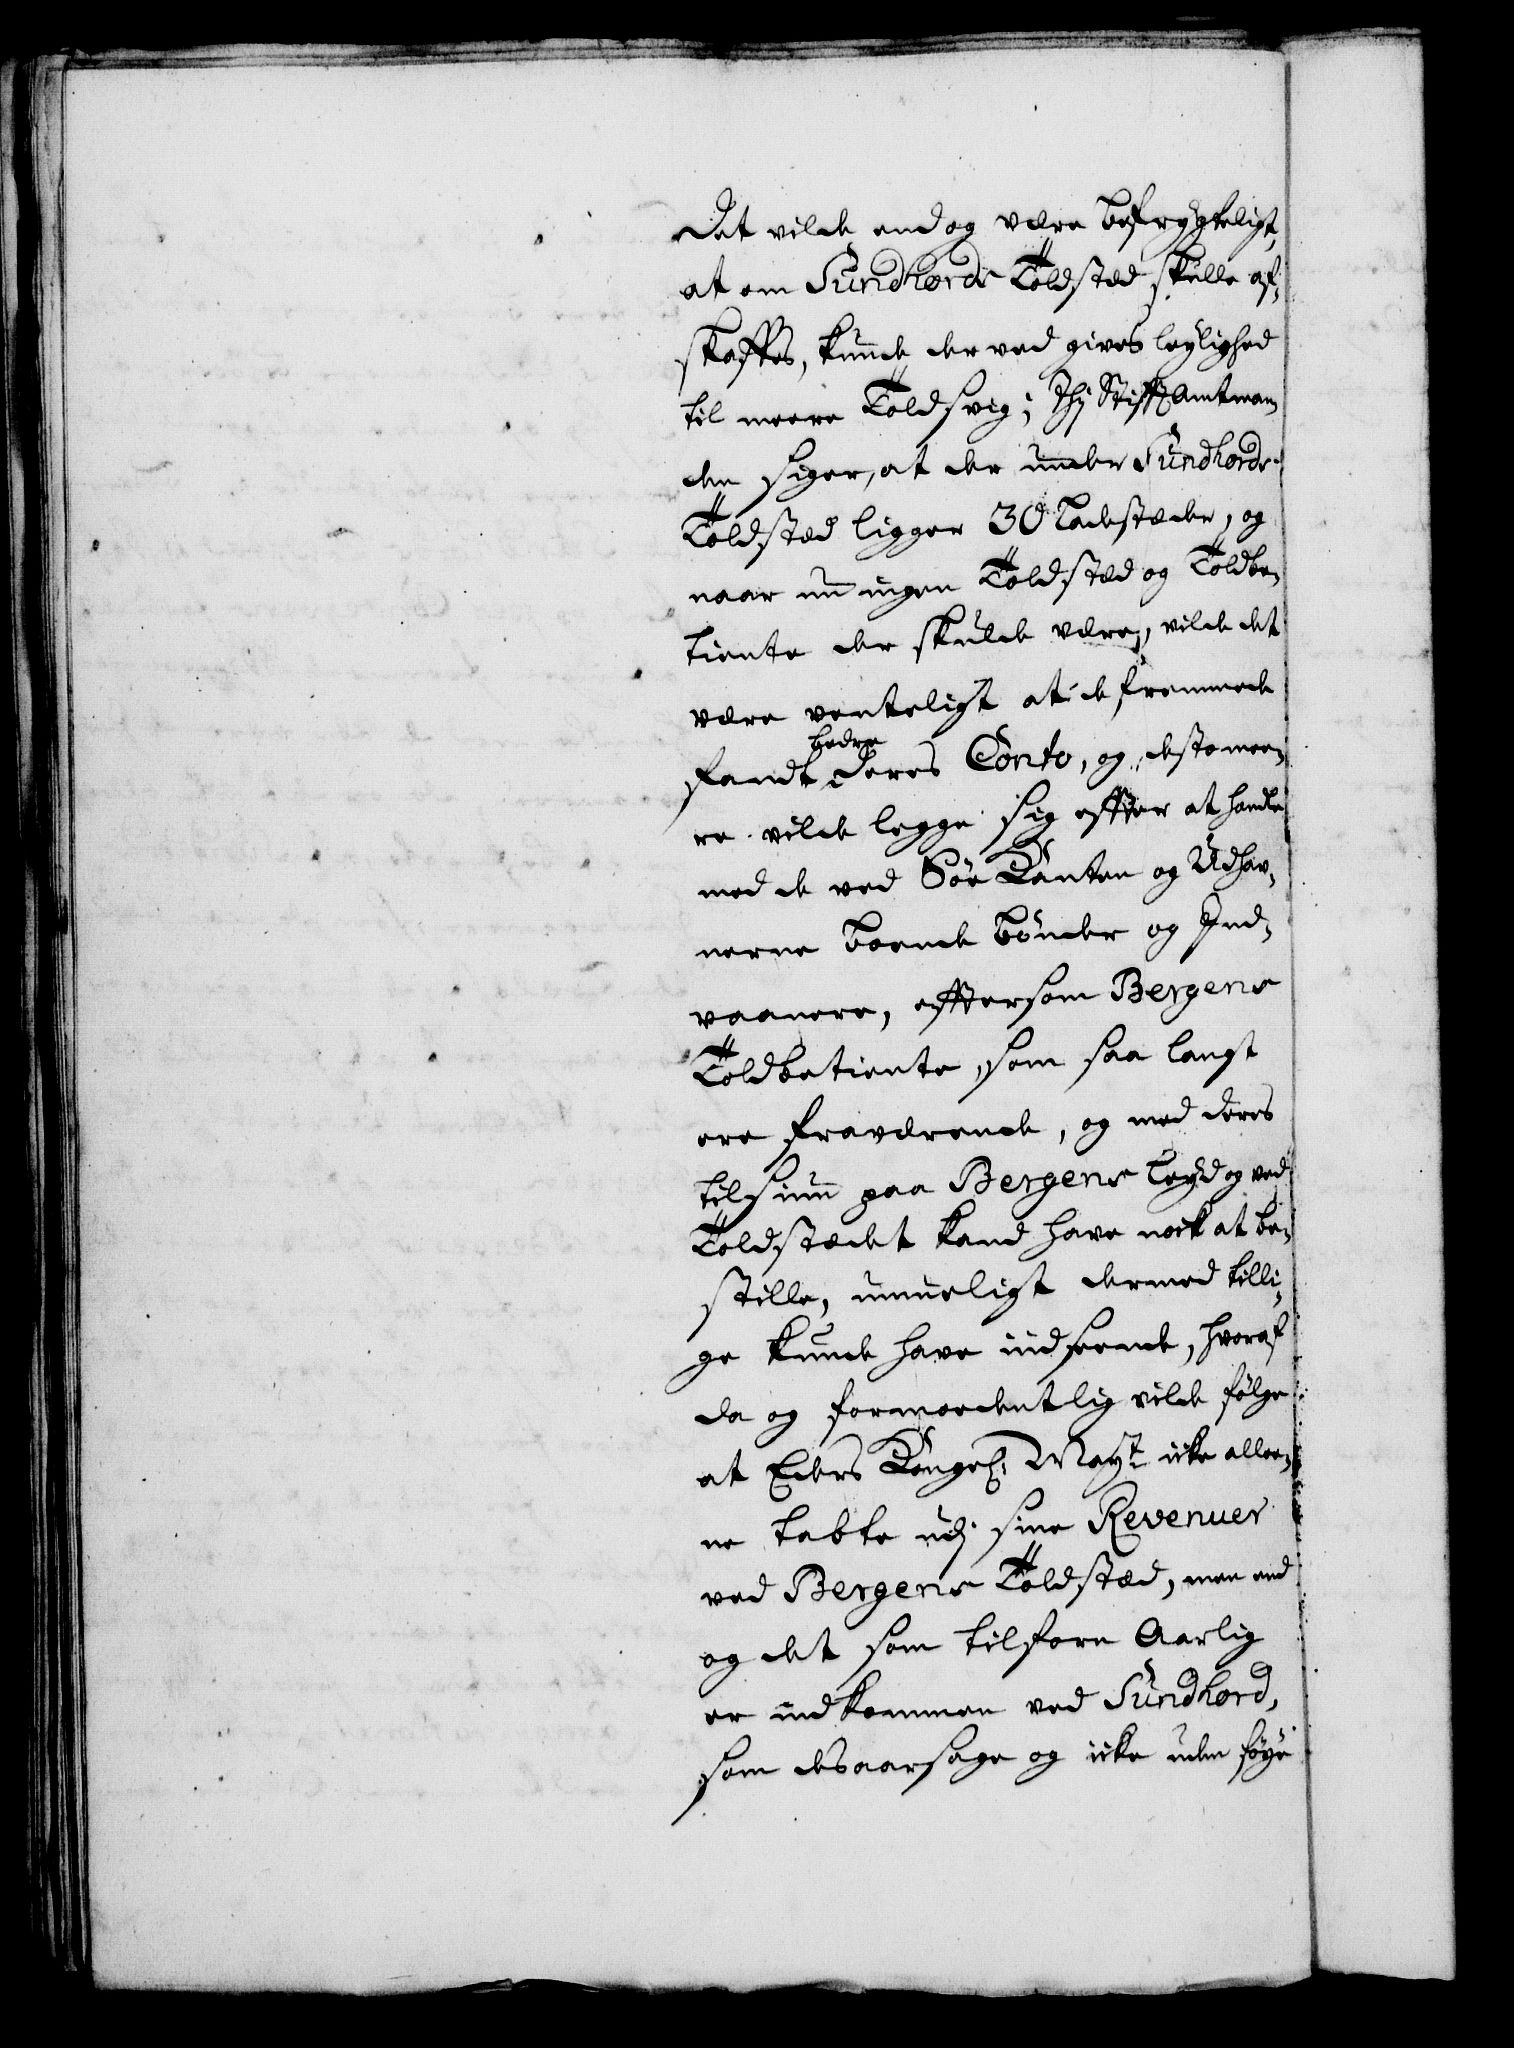 Det vilde endog være befrygteligt,
at om Sundhords Toldsted skulle af-
skaffes, kunde der ved gives leylighed
til meere Toldsvig; Thj Stifftamtman
den siger, at der under Sundhords
Toldsted ligger 30 Ladestæder, og
naar nu ingen Toldsted og Toldbe-
tiente der skulde være, vilde det
være venteligt at de fremmede
bedre
fandt deres Conto, og destomee-
re vilde legge sig effter at handle
med de ved Søe Kanten og Udhav-
nerne boende bønder og Ind-
vaanere, efftersom Bergens
Toldbetiente, som saa langt
ere fraværende, og med deres
tilsiun paa Bergens Leyd og ved
Toldstædet kand have nock at be-
stille, umueligt dermed tilli-
ge kunde have indseende, hvoraf
da og formoedentlig vilde følge
at Eders Kongel: Mayt icke allee-
ne tabte udj sine Revenuer
ved Bergens Toldsted, men end
og det som tilforn Aarlig
er indkommen ved Sundhord,
som desaarsage og icke uden føye